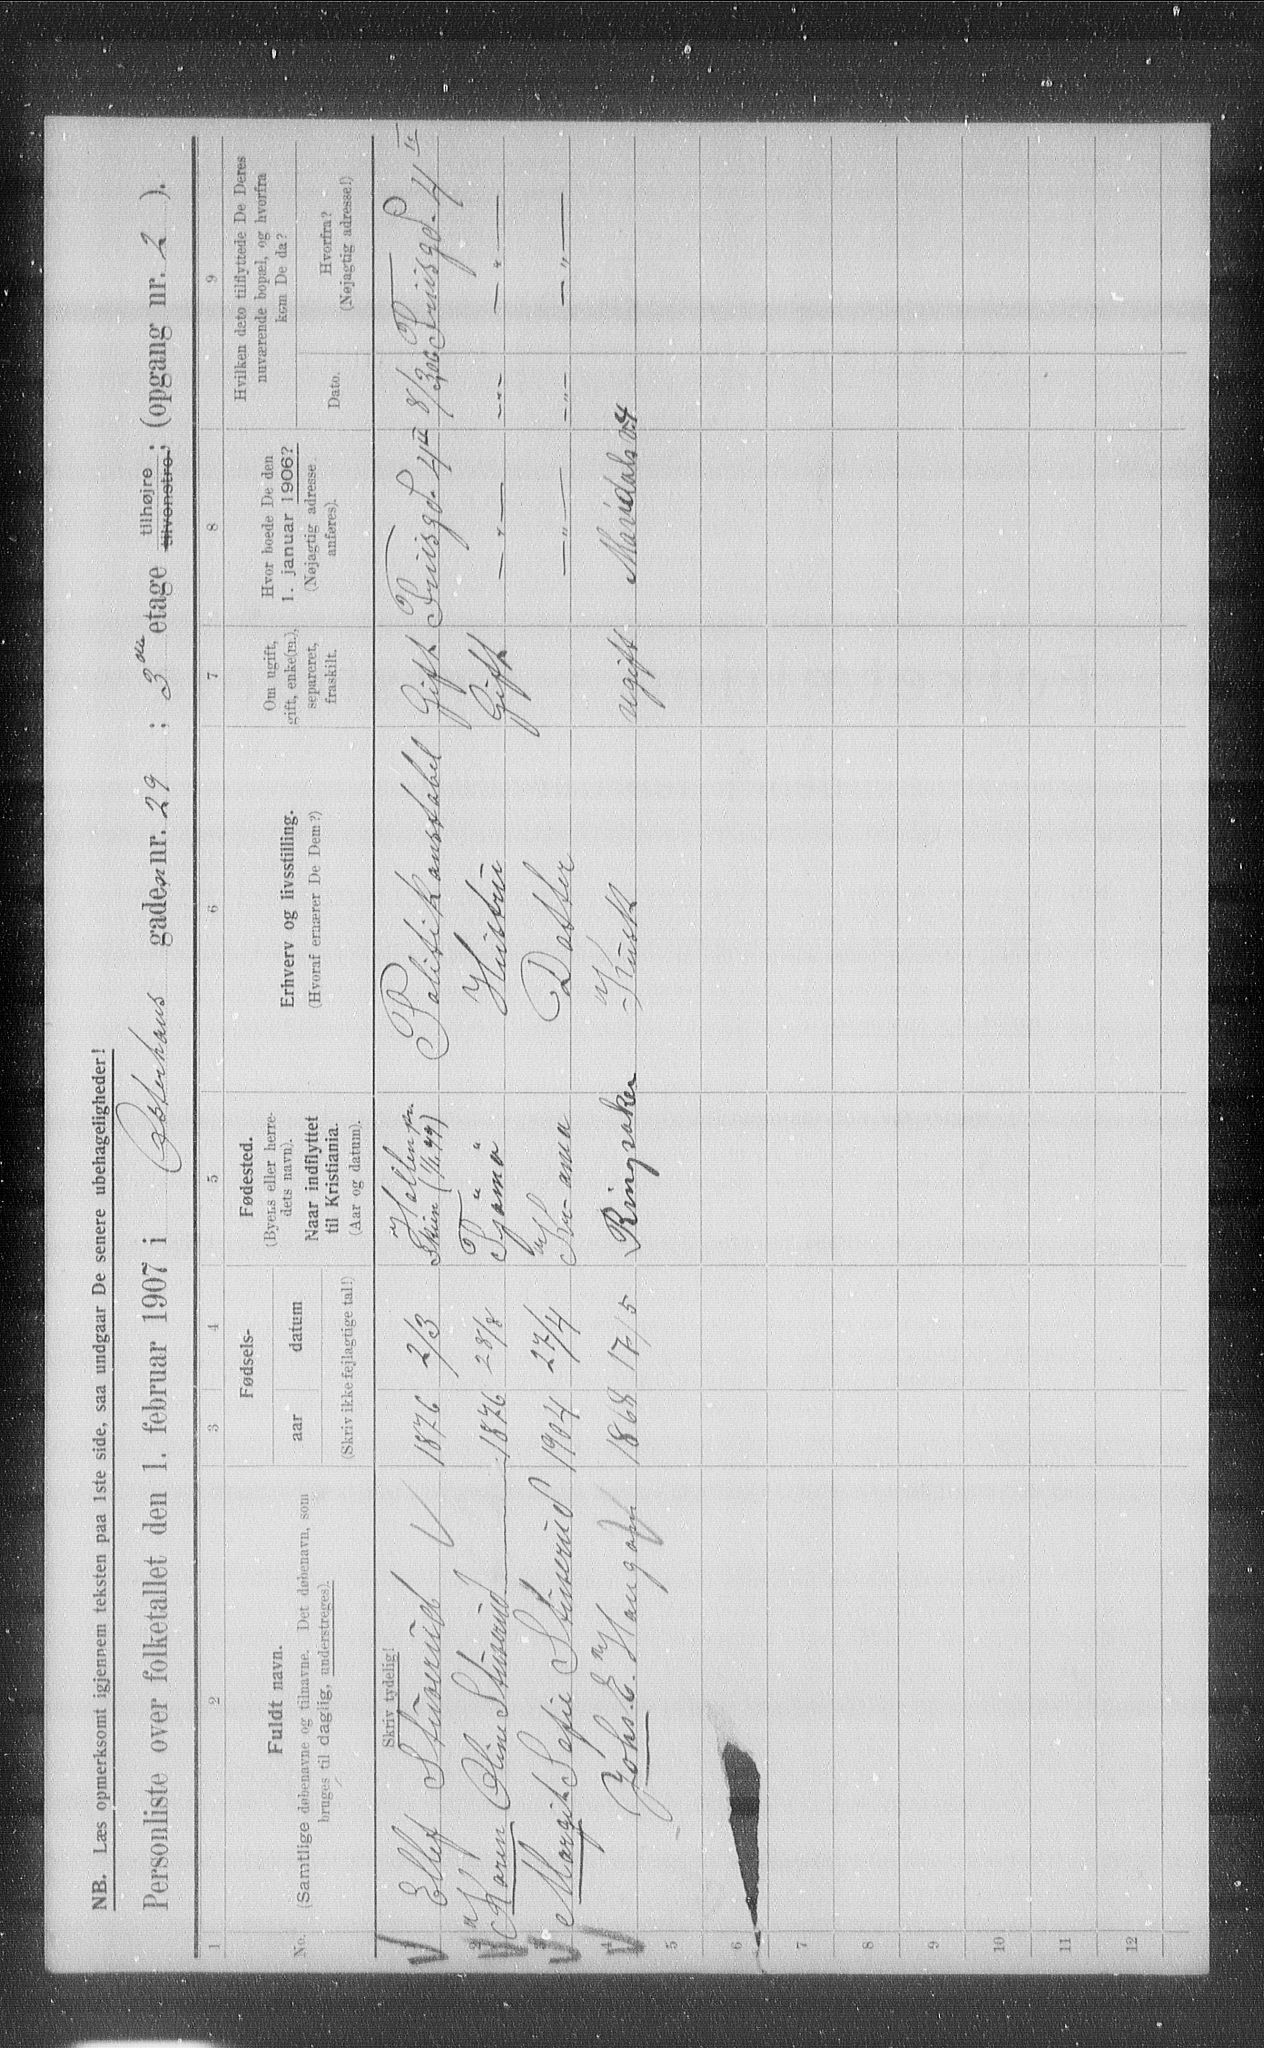 NB. Læs opmerksomt igjennem teksten paa 1ste side, saa undgaar De senere ubehageligheder!
Personliste over folketallet den 1. februar 1907 i Osterhaus gaden nr. 29 ; 3die etage tilhøjre tilvenstre ; (opgang nr. 2 ).
1 2 3 4 5 6 7 8 9
No.
Fuldt navn.
(Samtlige døbenavne og tilnavne. Det døbenavn, som
bruges til daglig, understreges).
Fødsels-
aar datum
(Skriv ikke fejlagtige tal!)
Fødested.
(Byens eller herre-
dets navn).
Naar indflyttet
til Kristiania.
(Aar og datum).
Erhverv og livsstilling.
(Hvoraf ernærer De Dem?)
Om ugift,
gift, enke(m.),
separeret,
fraskilt.
Hvor boede De den
1. januar 1906?
(Nøjagtig adresse
anføres).
Hvilken dato tilflyttede De Deres
nuværende bopæl, og hvorfra
kom De da?
Dato.
Hvorfra?
(Nøjagtig adresse!)
Skriv tydelig!
Ellef Stuverud 1876 2/3 Skien Politikonstabel Gift Friisgd. 4 II 8/3 06 Friisgd. 4
2 Karen Oline Stuverud 1876 28/8 Tjømø Hustru Gift — " — - " - — " —
3 Margit Sofie Stuverud 1904 27/4 Kr-ania Datter — " — - " - — " —
4 Johs. E. Haugen 1868 17/5 Ringsaker Kusk ugift Maridalsv. 4
5
6
7
8
9
10
11
12